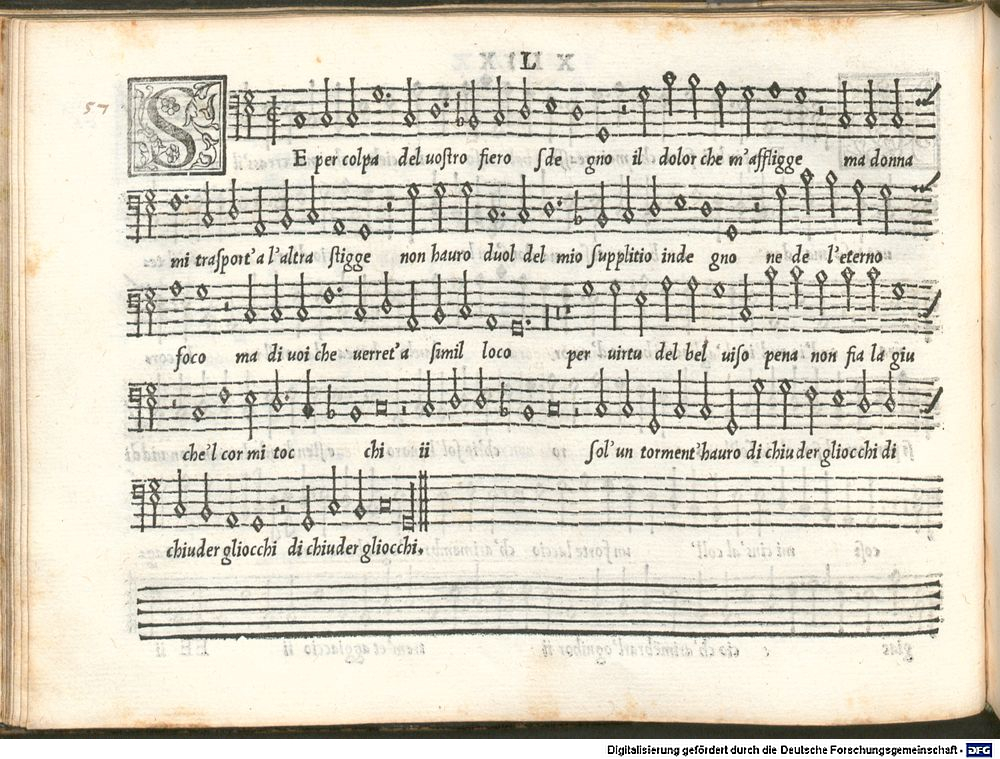 L
57
SE per colpa del uostro fiero sde gno il dolor che m'affligge ma donna
mi trasport'a l'altra stigge non hauro duol del mio supplitio inde gno ne de l'eterno
foco ma di uoi che uerret'a simil loco per uirtu del bel uiso pena non fia la giu
che'l cor mi toc chi ii sol'un torment'hauro di chiuder gliocchi di
chiuder gliocchi di chiuder gliocchi.
Digitalisierung gefördert durch die Deutsche Forschungsgemeinschaft - DFG